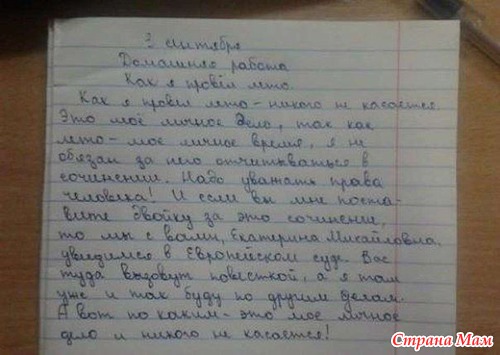 3 сентября
Домашняя работа
Как я провёл лето.
Как я провёл лето - никого не касается.
Это моё личное дело, так как
лето - моё личное время, я не
обязан за него отчитываться в
сочинении. Надо уважать права
человека! И если вы мне поста-
вите двойку за это сочинение,
то мы с вами, Екатерина Михайловна,
увидимся в Европейском суде. Вас
туда вызовут повесткой, а я там
уже и так буду по другим делам.
А вот по каким - это мое личное
дело и никого не касается!
Страна Мам